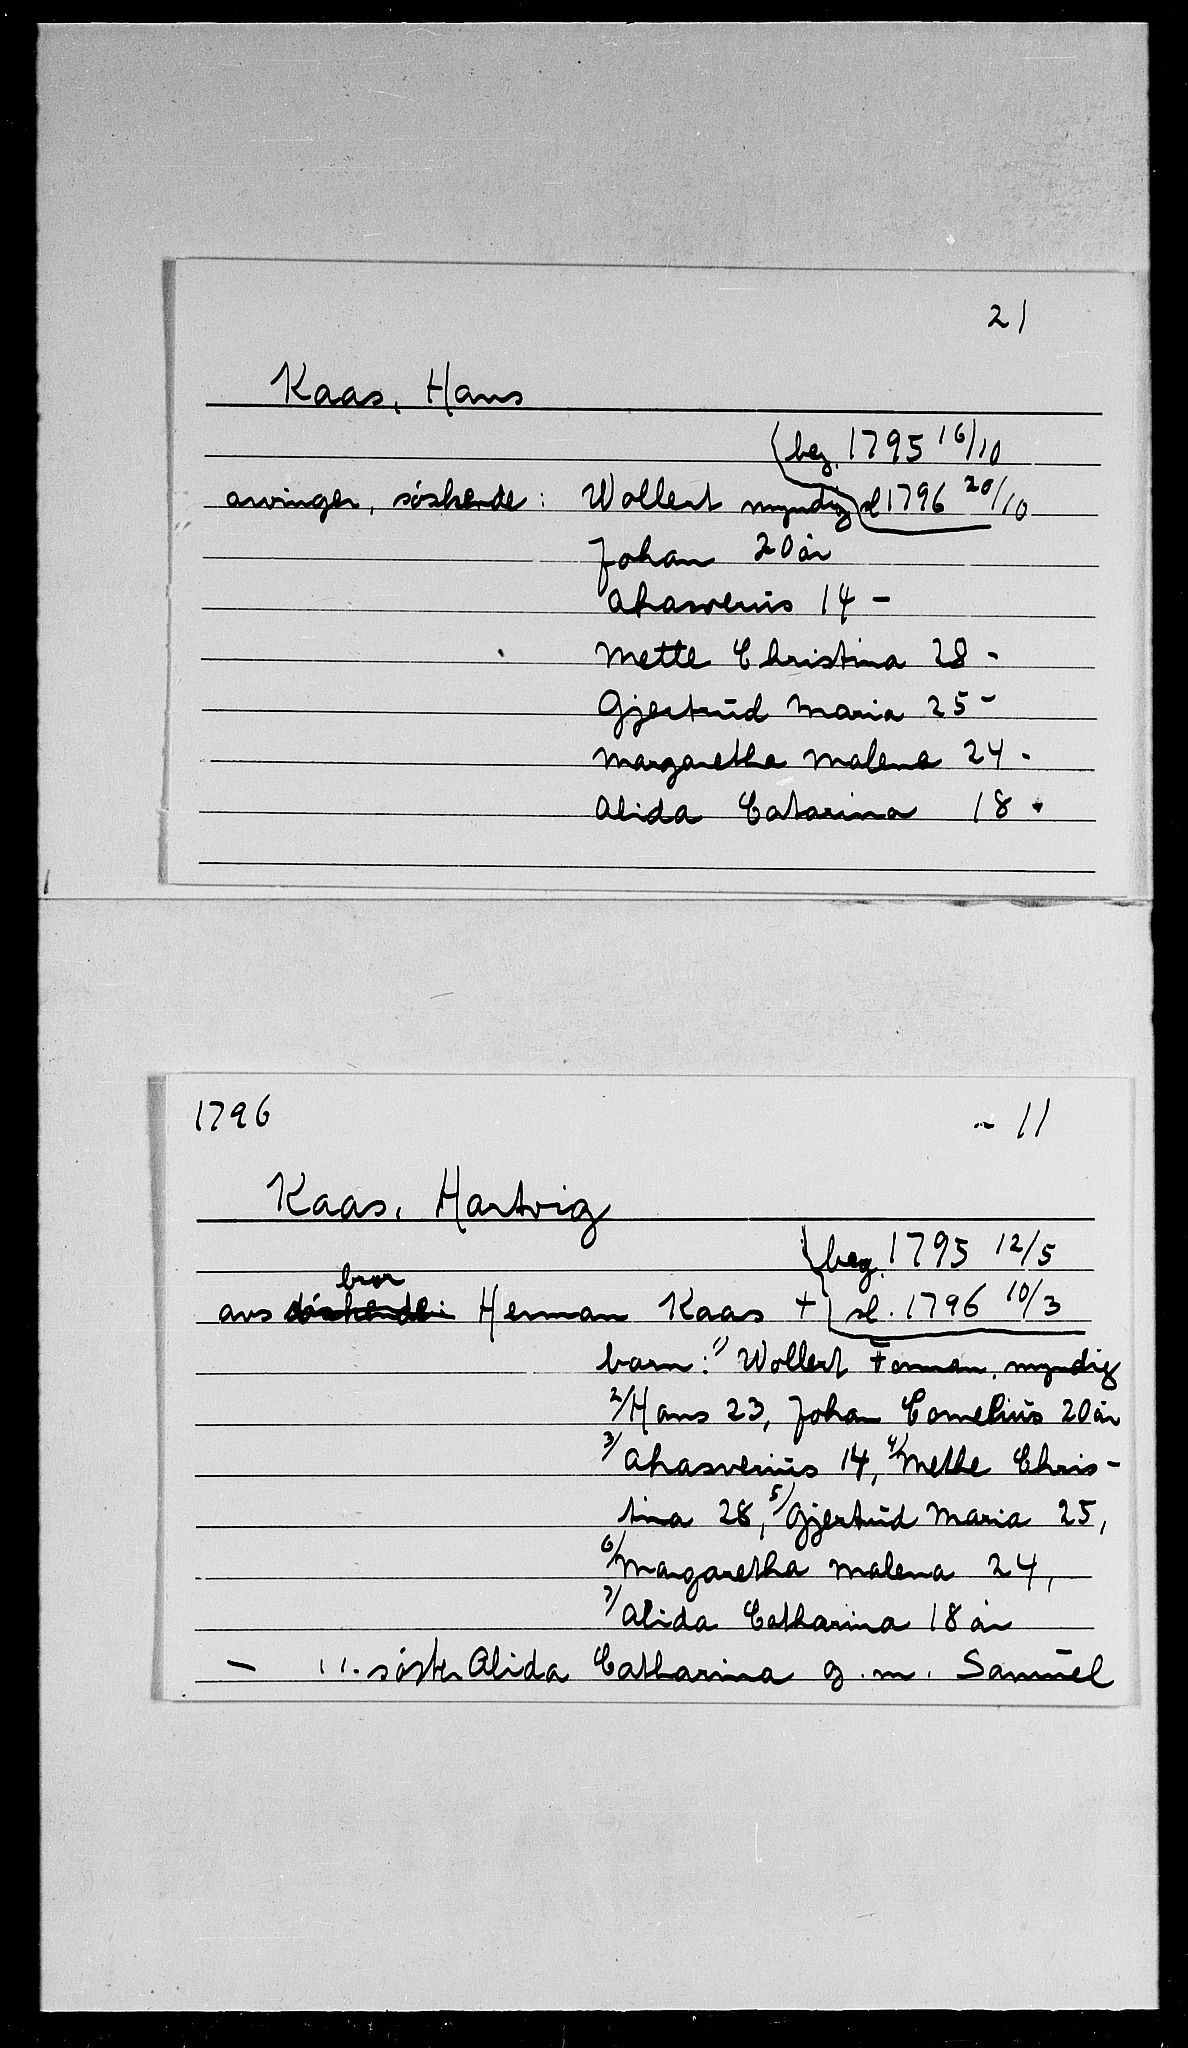 21
Kaas, Hans
beg. 1795 16/10
arvinger, söskende: Wollert myndig sl 1796 20/10
Johan 20 år
Ahasverius 14 -
Mette Christina 28 -
Gjertrud Maria 25 -
Margaretha Malena 24 -
Alida Catarina 18 -
1796 - 11
Kaas, Hartvig
beg. 1795 12/5
bror
avs söskende: Herman Kaas + sl. 1796 10/3
barn: 1/ Wollert Forman, myndig
2/ Hans 23, Johan Cornelius 20 år
3/ Ahasverius 14, 4/ Methe Chris-
tina 28, 5/ Gjertrud Maria 25,
6/ Margaretha Malena 24,
7/ Alida Catharina 18 år
- 11. söster Alida Catharina g. m. Samuel